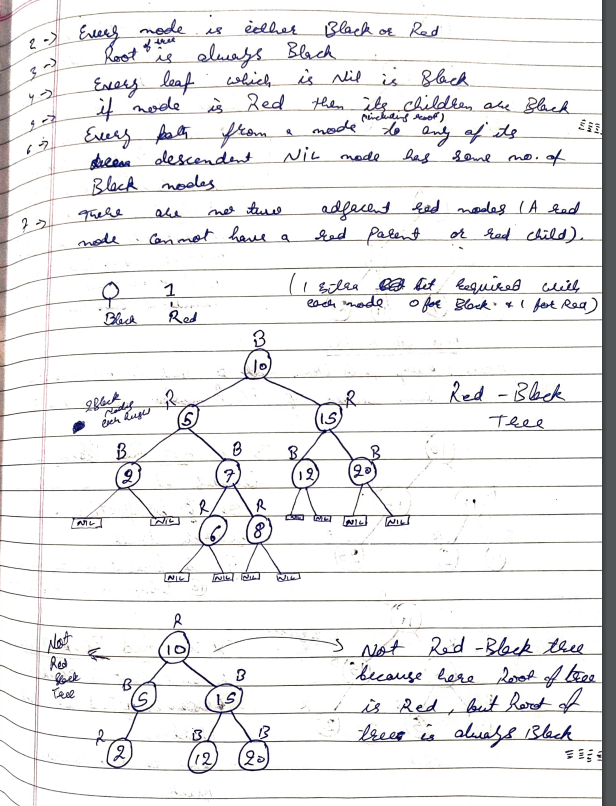 2 -> Every node is either Black or Red
3 -> Root of tree is always Black
4 -> Every leaf which is Nil is Black
5 -> if node is Red then its children are Black
6 -> Every path from a node (including root) to any of its
descendent NIL node has same no. of
Black nodes
7 -> There are no two adjacent red nodes (A red
node cannot have a red parent or red child).
0 1 (1 extra bit required with
Black Red each node 0 for Black & 1 for Red)
B
10
R R Red - Black
5 15 Tree
2 Black nodes each
B B B B
2 7 12 20
NIL NIL R R NIL NIL NIL NIL
6 8
NIL NIL NIL NIL
R
Not 10 Not Red - Black tree
Red because here Root of tree
Black B B is Red, but Root of
Tree 5 15 trees is always Black
R B B
2 12 20